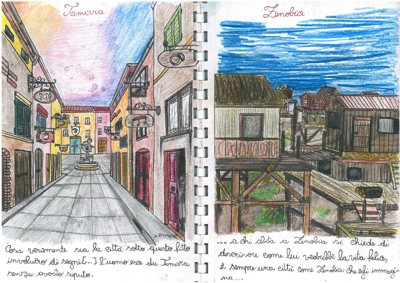 Tamara
Cosa veramente sia la città sotto questo fitto
involucro di segni... l'uomo esce da Tamara
senza averlo saputo.
Zenobia
... a chi abita a Zenobia si chiede di
descrivere come lui vedrebbe la vita felice,
è sempre una città come Zenobia che egli immagi-
na...